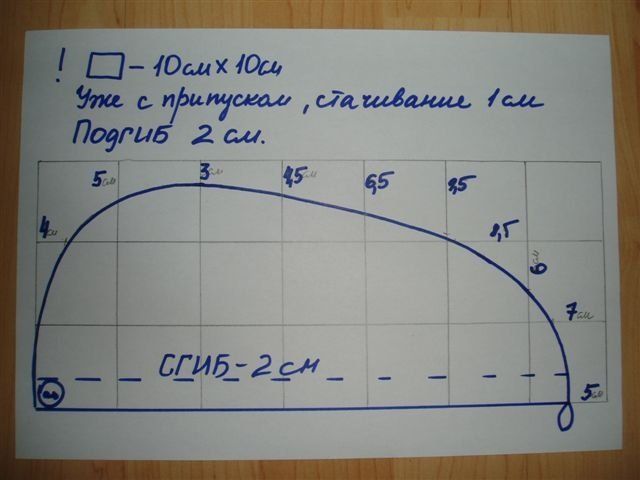 ! □ – 10см х 10см
Уже с припуском, стачивание 1см
Подгиб 2 см.
5см 3см 4,5см 6,5 9,5
4см 8,5
6см
7см
СГИБ-2см
5см